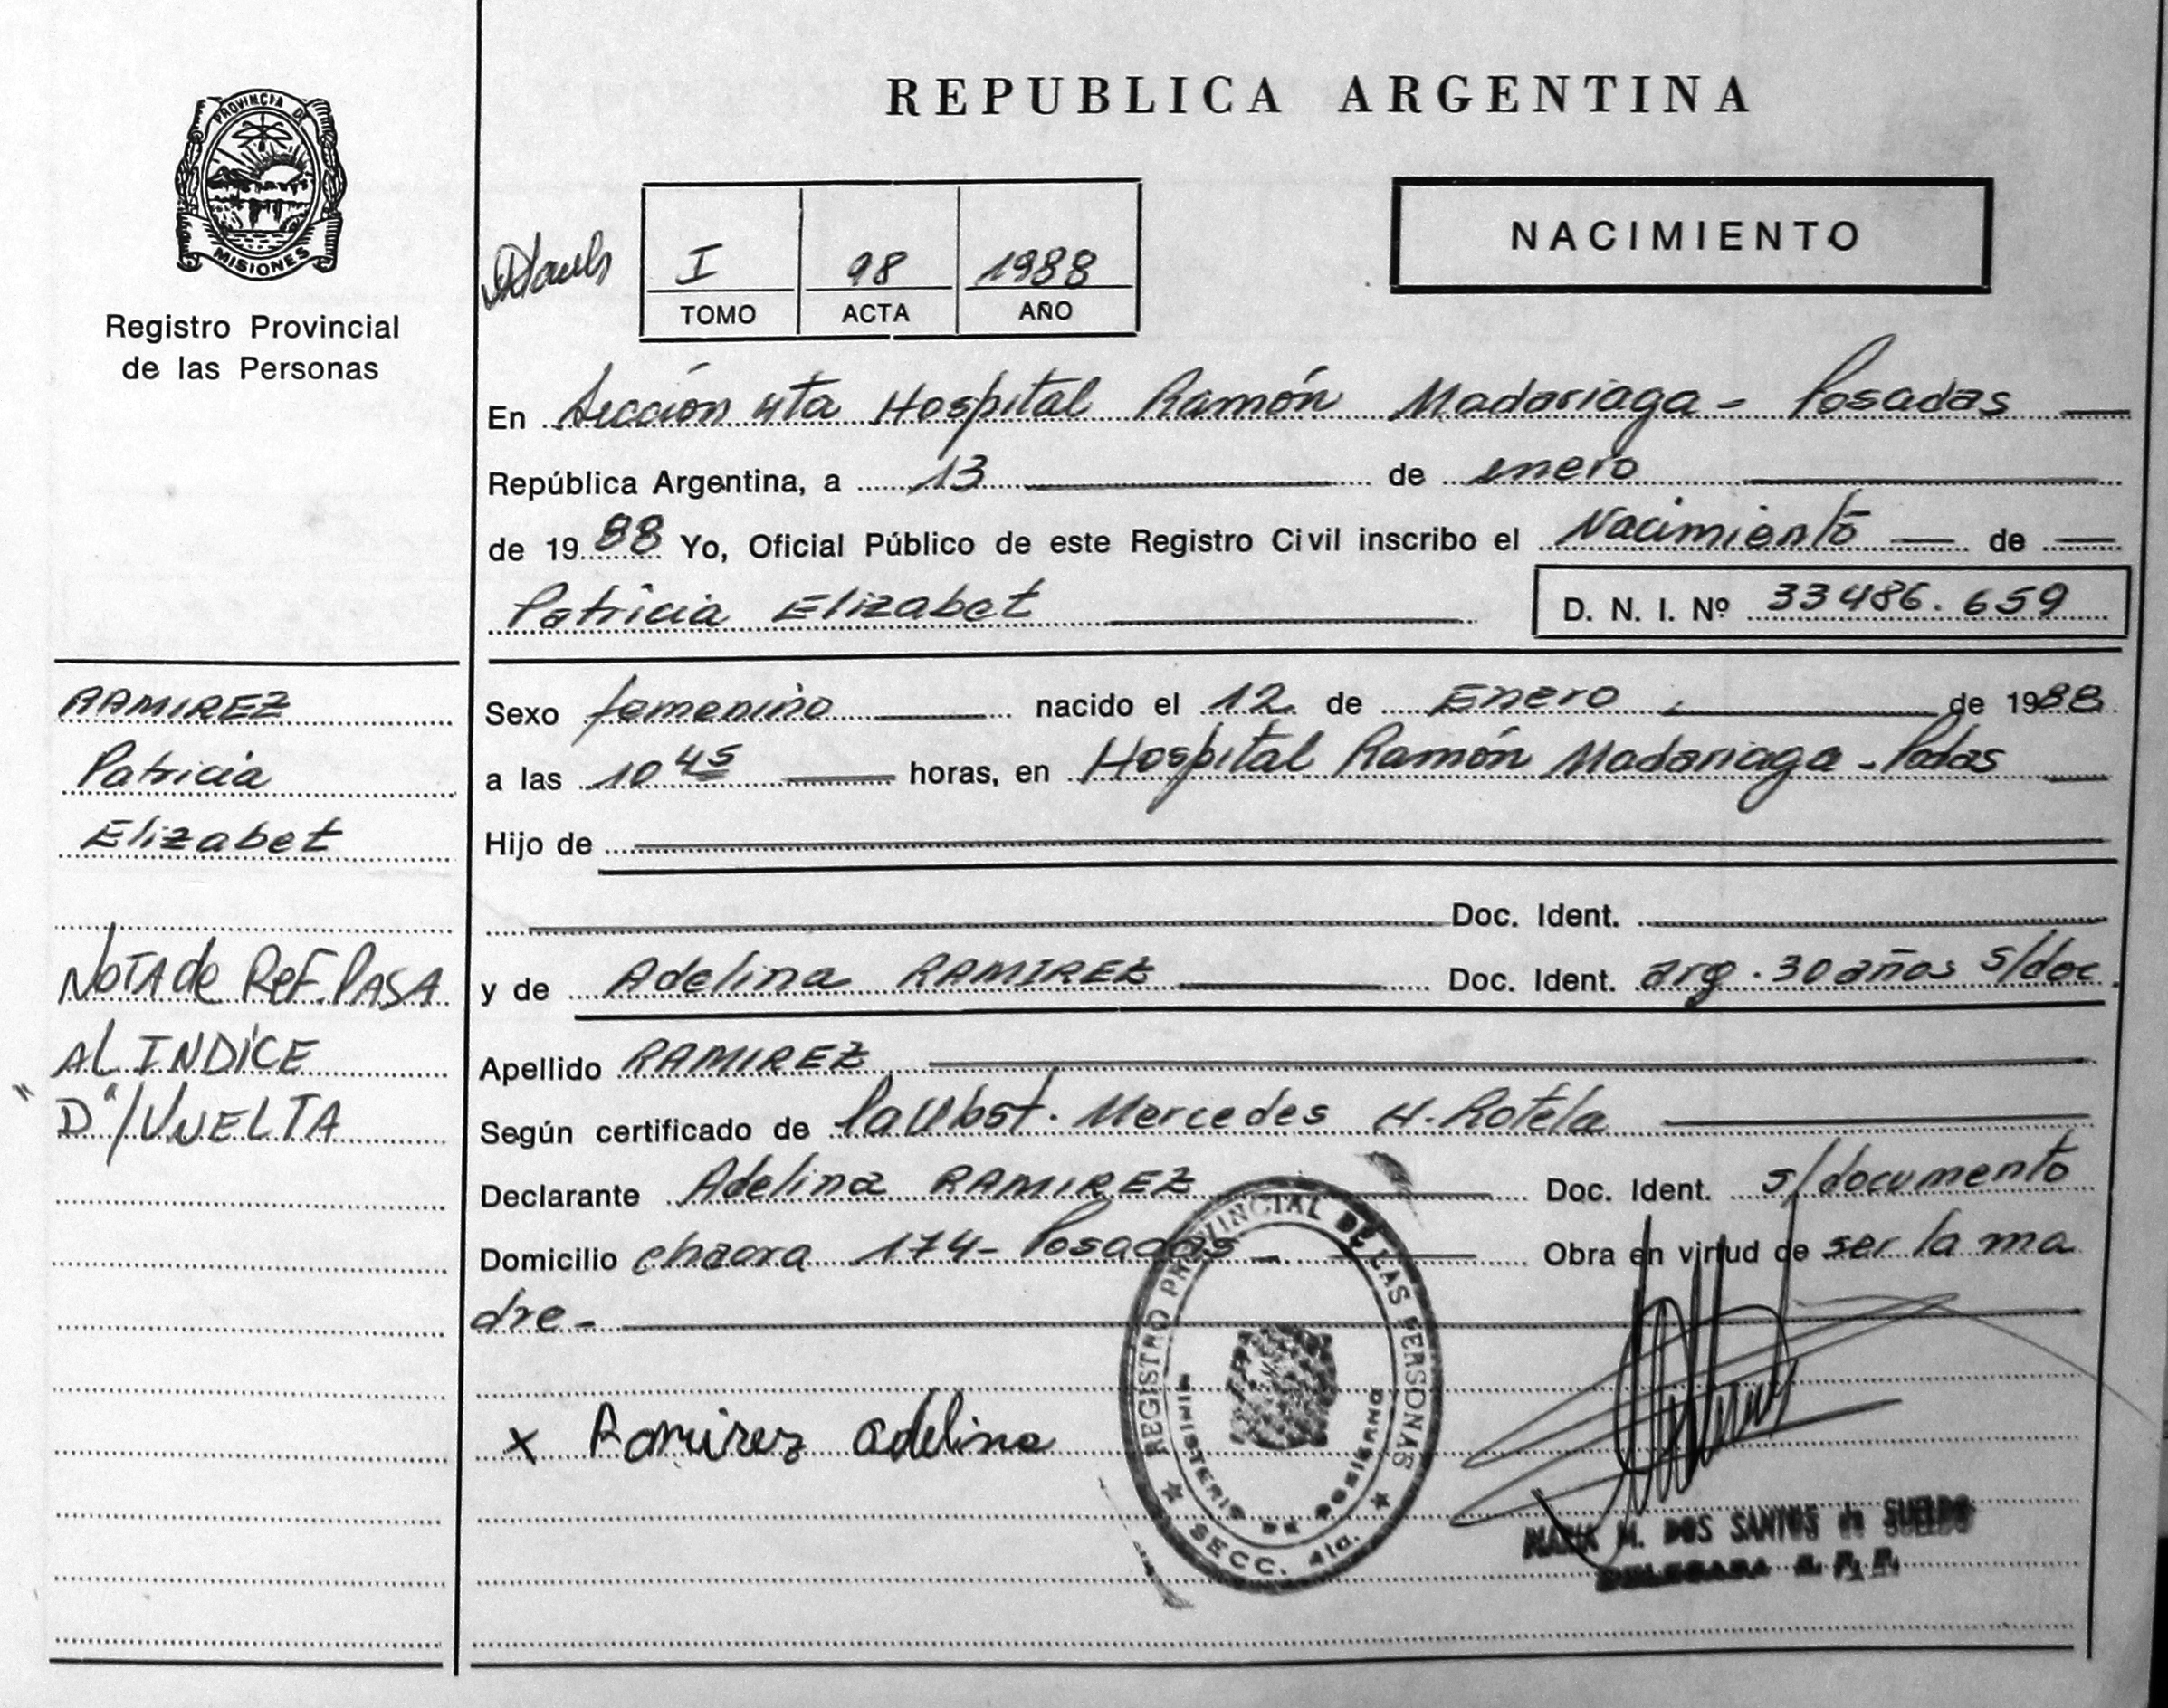 PROVINCIA DE
MISIONES
Registro Provincial
de las Personas
REPUBLICA ARGENTINA
I 98 1988
TOMO ACTA AÑO
NACIMIENTO
En Sección 4ta Hospital Ramón Madariaga - Posadas
República Argentina, a 13 de enero
de 1988 Yo, Oficial Público de este Registro Civil inscribo el Nacimiento de
Patricia Elizabet D. N. I. Nº 33486.659
RAMIREZ
Patricia
Elizabet
NOTA de REF. PASA
AL INDICE
"D"/VUELTA
Sexo femenino nacido el 12 de Enero de 1988
a las 10 45 horas, en Hospital Ramón Madariaga - Pdas
Hijo de
Doc. Ident.
y de Adelina RAMIREZ Doc. Ident. arg. 30 años s/doc.
Apellido RAMIREZ
Según certificado de Mercedes H. Rotela
Declarante Adelina RAMIREZ Doc. Ident. s/documento
Domicilio chacra 174 - Posadas Obra en virtud de ser la ma
dre -
x Ramirez adelina
REGISTRO PROVINCIAL DE LAS PERSONAS
MINISTERIO DE GOBIERNO
SECC. 4ta.
MARIA M. DOS SANTOS de SUELDO
DELEGADA R. P. P.